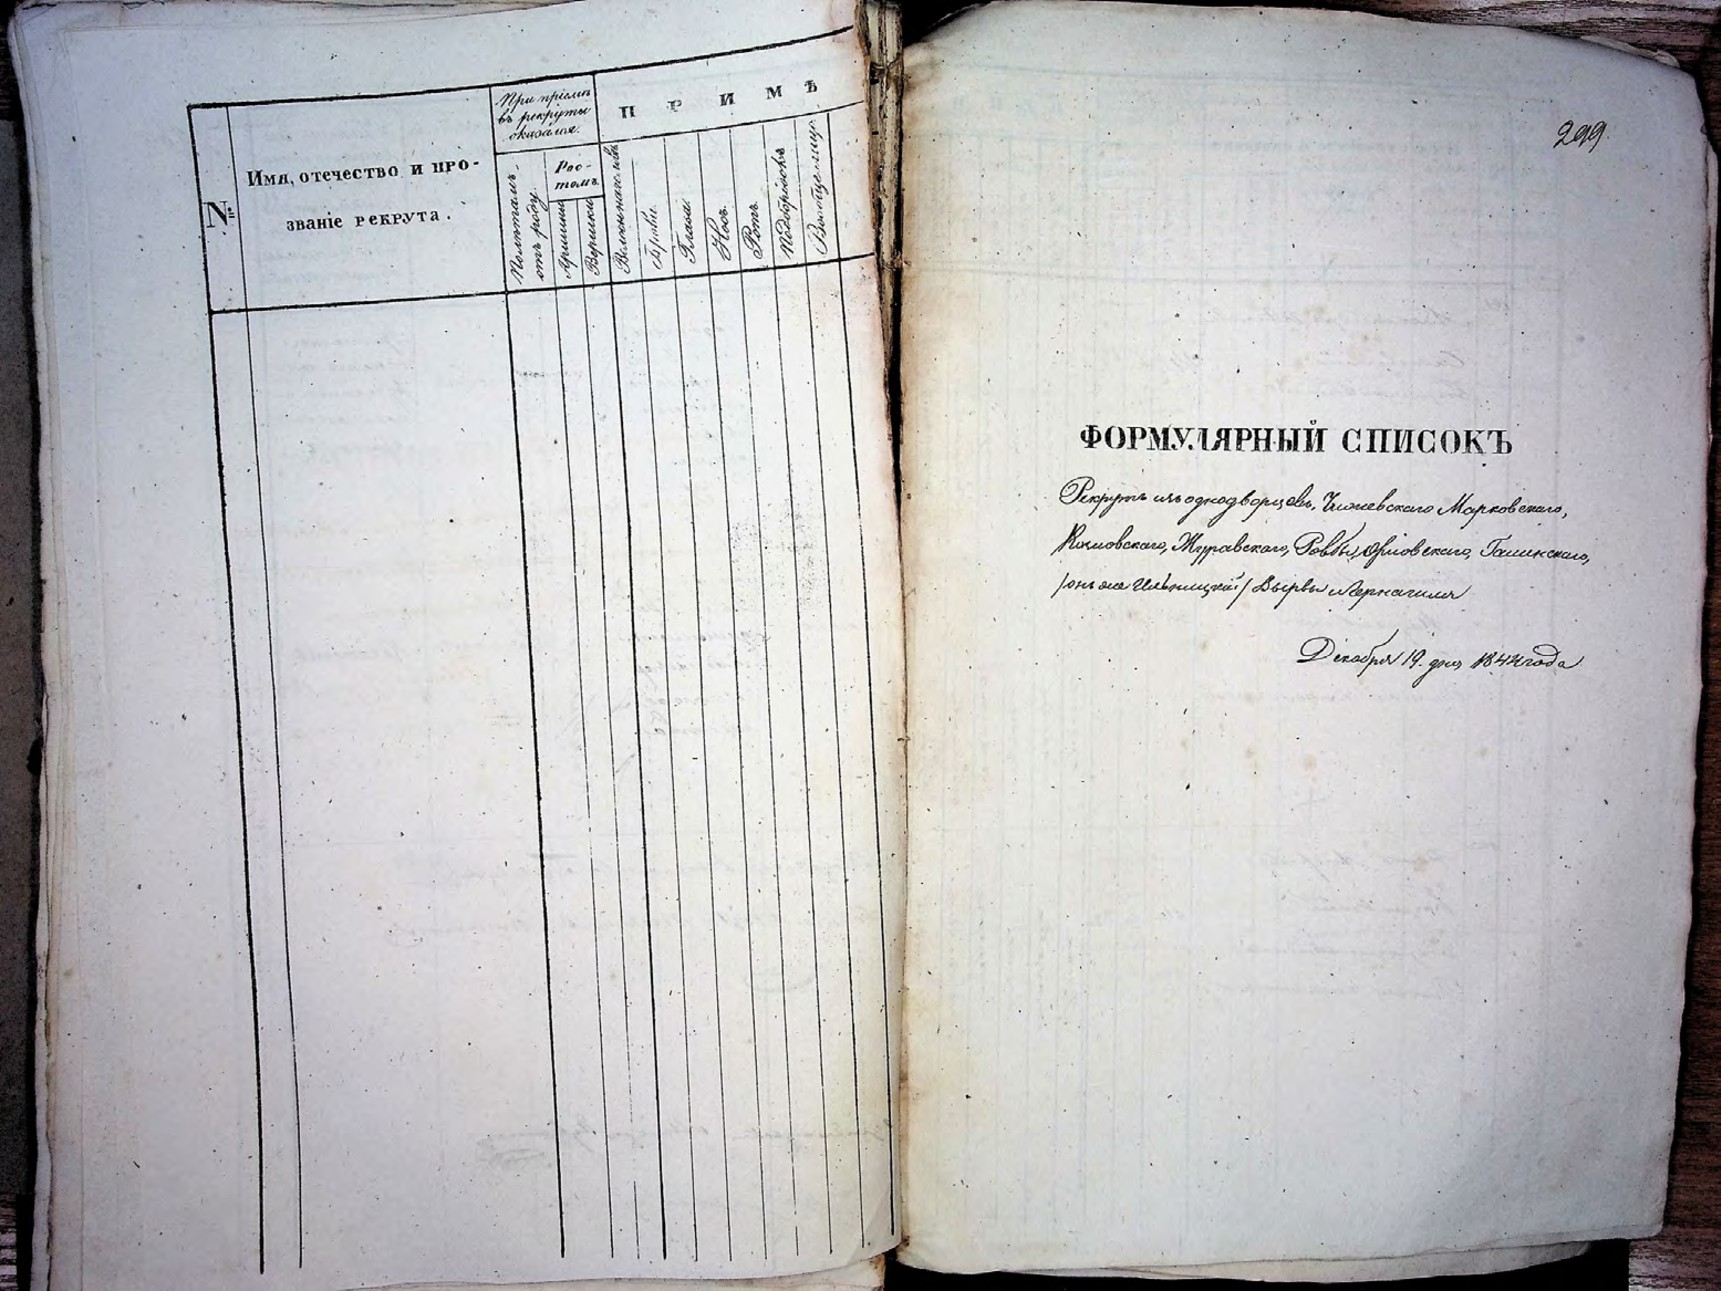 №
Имя, отечество и про-
званіе рекрута.
При пріемѣ
въ рекруты
оказался.
Полѣтамъ
отъ роду.
Рос-
томъ.
Аршины
Вершки
ПРИМѢ
Брови.
Глаза.
Носъ.
Ротъ.
Подбородокъ
Вообще лицо.
299
ФОРМУЛЯРНЫЙ СПИСОКЪ
Рекрутъ изъ однодворцевъ, Чижевскаго Марковскаго,
Козловскаго, Журавскаго, Ровбы, Орловскаго, Галинскаго,
/онъ же Ильницкій/ Вырвы и Чернагиля
Декабря 19. дня 1844 года